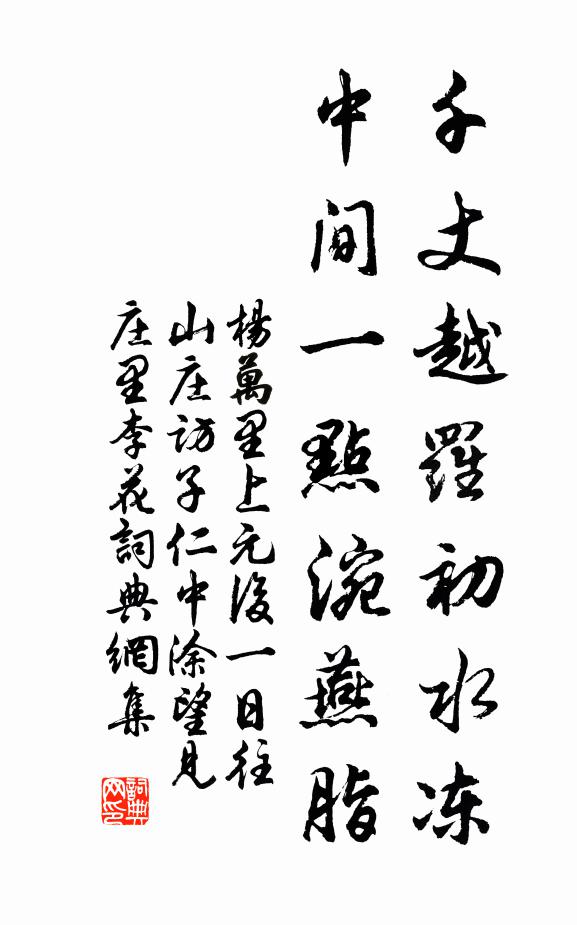 千丈越羅初水凍
中間一點涴燕脂
楊萬里上元後一日往
山庄訪子仁中涂望見
庄里李花詞典網集
詞典網印